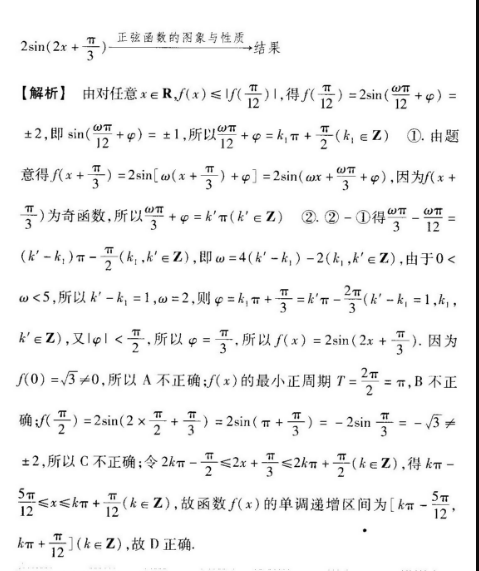 2sin(2x+π/3) ——正弦函数的图象与性质——→结果
【解析】 由对任意x∈R,f(x)≤|f(π/12)|,得f(π/12)=2sin(ωπ/12+φ)=
±2,即 sin(ωπ/12+φ)=±1,所以ωπ/12+φ=k₁π+π/2(k₁∈Z) ①. 由题
意得f(x+π/3)=2sin[ω(x+π/3)+φ]=2sin(ωx+ωπ/3+φ),因为f(x+
π/3)为奇函数,所以ωπ/3+φ=k'π(k'∈Z) ②. ②-①得ωπ/3-ωπ/12=
(k'-k₁)π-π/2(k₁,k'∈Z),即ω=4(k'-k₁)-2(k₁,k'∈Z),由于0<
ω<5,所以k'-k₁=1,ω=2,则φ=k₁π+π/3=k'π-2π/3(k'-k₁=1,k₁,
k'∈Z),又|φ|<π/2,所以φ=π/3,所以f(x)=2sin(2x+π/3). 因为
f(0)=√3≠0,所以 A 不正确;f(x)的最小正周期T=2π/2=π,B 不正
确;f(π/2)=2sin(2×π/2+π/3)=2sin(π+π/3)=-2sin π/3=-√3≠
±2,所以 C 不正确;令2kπ-π/2≤2x+π/3≤2kπ+π/2(k∈Z),得kπ-
5π/12≤x≤kπ+π/12(k∈Z),故函数f(x)的单调递增区间为[kπ-5π/12,
kπ+π/12](k∈Z),故 D 正确.